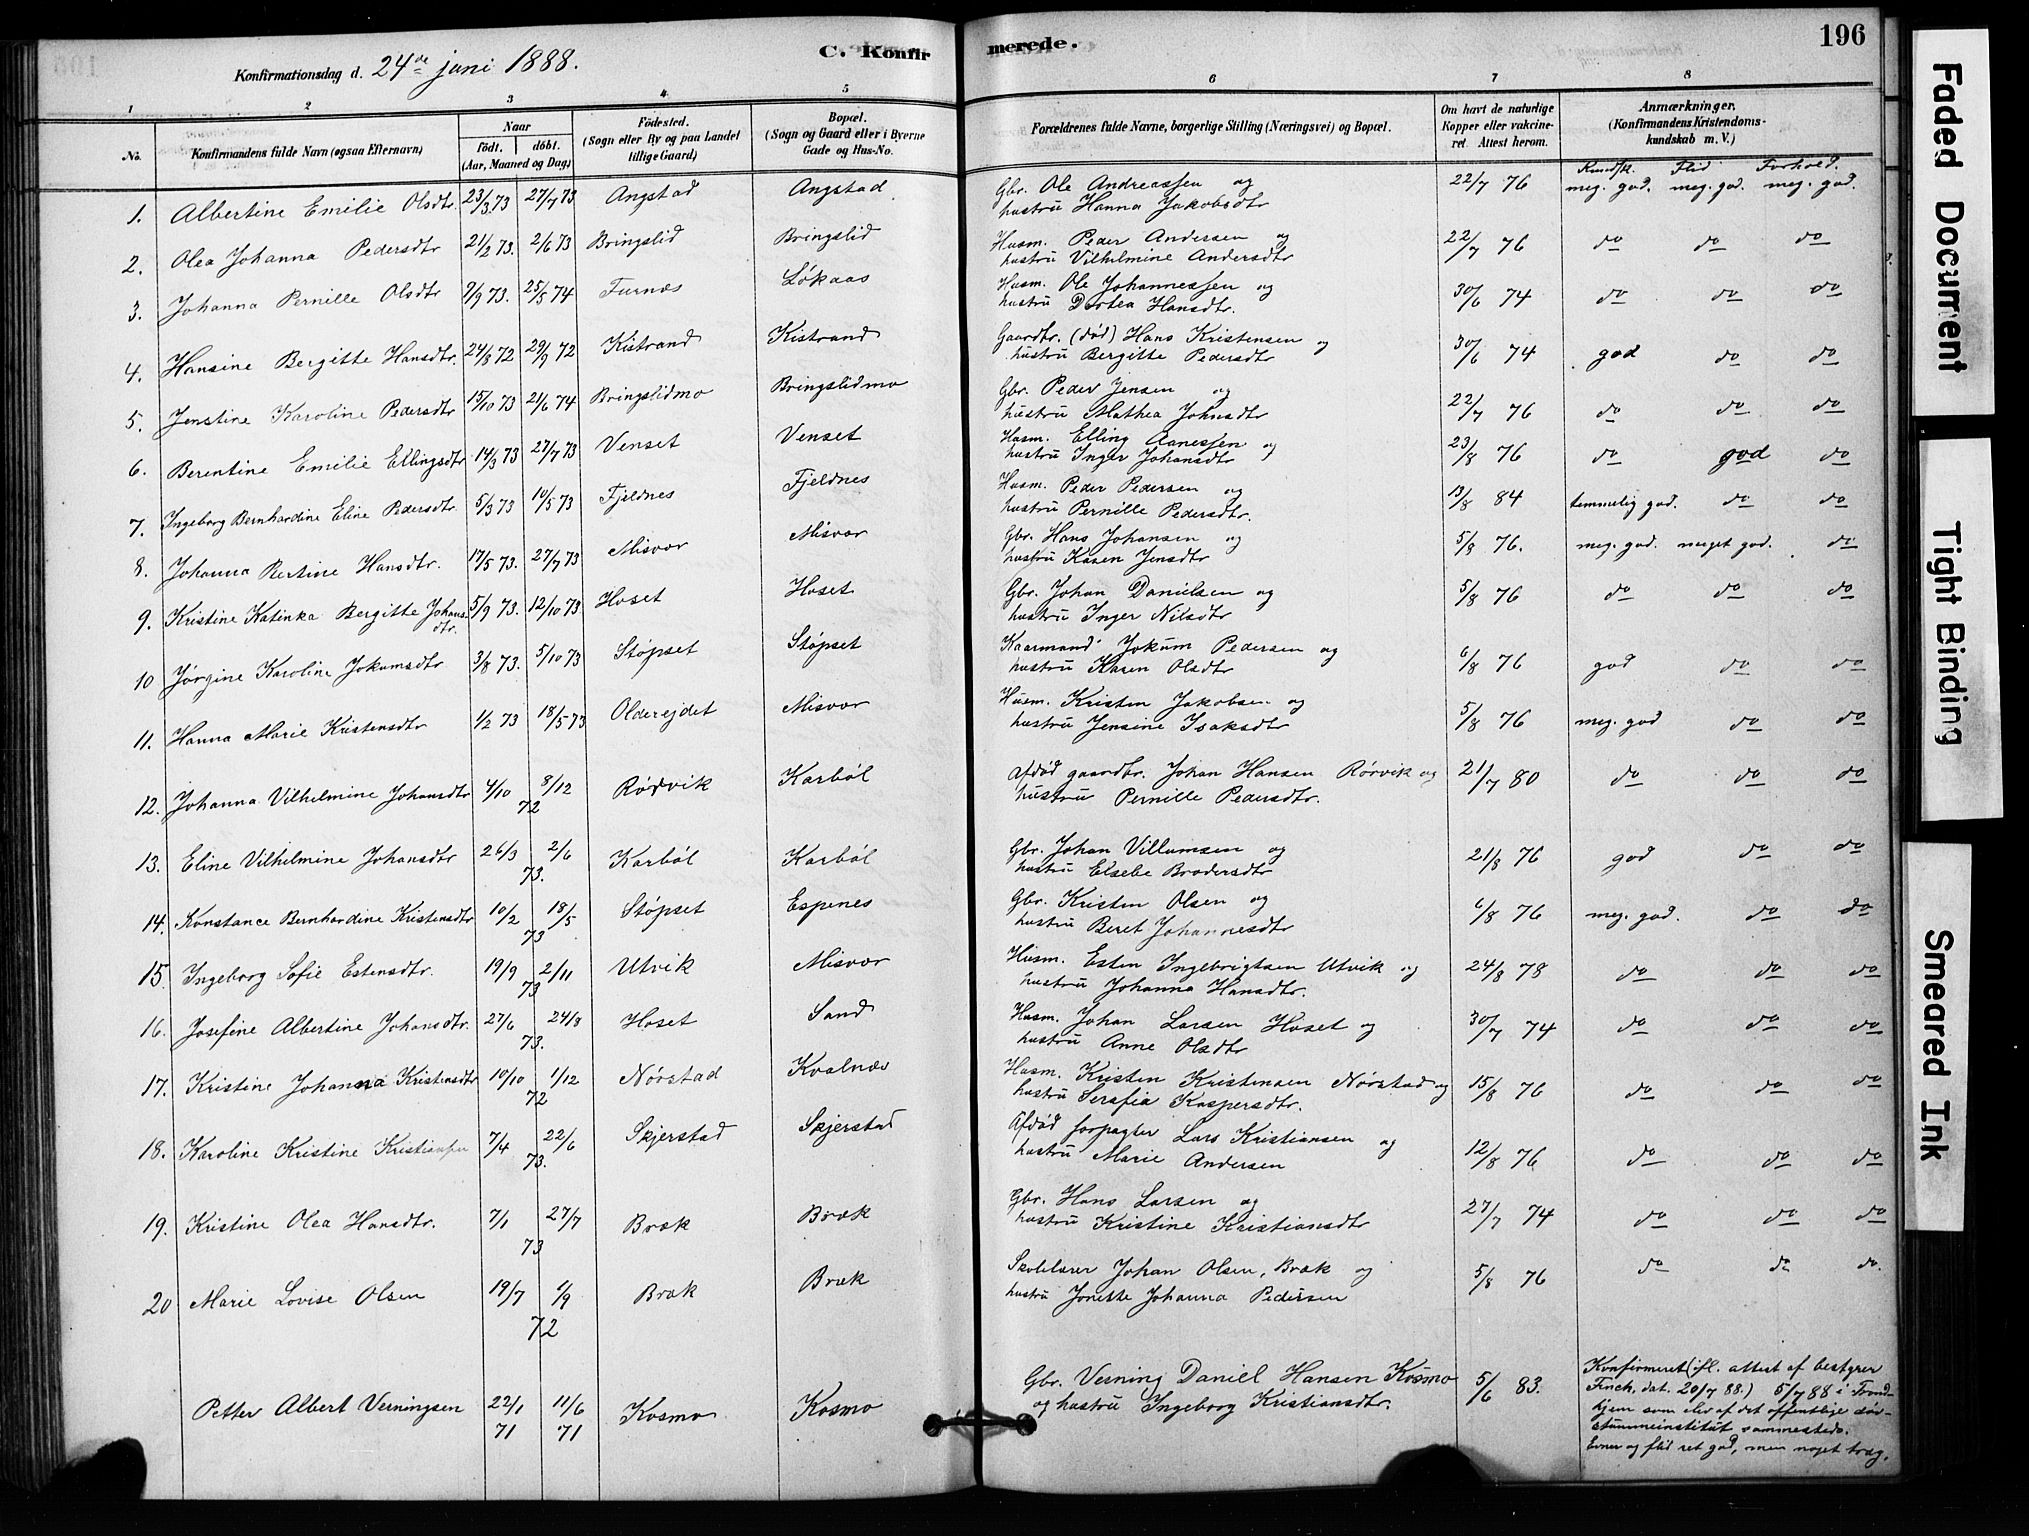 196
Konfirmationsdag d. 24de juni 1888.
C. Konfirmerede.
1 2 3 4 5 6 7 8
No.
Konfirmandens fulde Navn (ogsaa Efternavn)
Naar
født. døbt.
(Aar, Maaned og Dag)
Fødested.
(Sogn eller By og paa Landet
tillige Gaard)
Bopæl.
(Sogn og Gaard eller i Byerne
Gade og Hus-No.
Forældrenes fulde Navne, borgerlige Stilling (Næringsvei) og Bopæl.
Om havt de naturlige
Kopper eller vakcine-
ret. Attest herom.
Anmærkninger.
(Konfirmandens Kristendoms-
kundskab m. V.)
Kundsk. Flid Forhold.
1. Albertine Emilie Olsdtr. 23/3 73 27/7 73 Angstad Angstad Gbr. Ole Andreassen og 22/7 76 meg. god. meg. god. meg. god.
hustru Hanna Jakobsdtr
2. Olea Johanna Pedersdtr 21/2 73. 2/6 73 Bringslid Bringslid Husm. Peder Andersen og 22/7 76 do do do
hustru Vilhelmine Andersdtr
3. Johanna Pernille Olsdtr 9/9 73. 25/5 74 Furnes Løkaas Husm. Ole Johannessen og 30/6 74 do do do
hustru Dortea Hansdtr.
4. Hansine Bergitte Hansdtr. 24/8 72 29/9 72 Kistrand Kistrand Gaardbr. (død) Hans Kristensen og 30/6 74 god do do
hustru Bergitte Pedersdtr
5. Jenstine Karoline Pedersdtr 15/10 73 21/6 74 Bringslidmo Bringslidmo Gbr. Peder Jensen og 22/7 76 do do do
hustru Mathea Johnsdtr
6. Berentine Emilie Ellingsdtr 14/3 73 27/7 73 Venset Venset Husm. Elling Aanessen og 23/8 76 do god do
hustru Inger Johansdtr
7. Ingeborg Bernhardine Eline Pedersdtr. 5/3 73 10/5 73 Fjeldnes Fjeldnes Husm. Peder Pedersen og 13/8 84 temmelig god. do do
hustru Pernille Pedersdtr.
8. Johanna Bertine Hansdtr. 17/5 73. 27/7 73 Misvær Misvær Gbr. Hans Johansen og 5/8 76. meg. god. meget god. do
hustru Karen Jensdtr
9. Kristine Katinka Bergitte Johans- 5/9 73. 12/10 73 Hoset Hoset Gbr. Johan Danielsen og 5/8 76 do do do
dtr. hustru Inger Nilsdtr
10 Jørgine Karoline Jokumsdtr 3/8 73. 5/10 73 Støpset Støpset Kaarmand Jokum Pedersen og 6/8 76 god do do
hustru Karen Olsdtr
11. Hanna Marie Kristensdtr 1/2 73 18/5 73 Oldereidet Misvær Husm. Kristen Jakobsen og 5/8 76 meg. god do do
hustru Jensine Isaksdtr
12. Johanna Vilhelmine Johansdtr 4/10 8/12 72 Rødvik Karbøl Afdød gaardbr. Johan Hansen Rørvik og 21/7 80 do do do
hustru Pernille Pedersdtr.
13. Eline Vilhelmine Johansdtr 26/3 2/6 73. Karbøl Karbøl Gbr. Johan Villumsen og 21/8 76 god do do
hustru Elsebe Brodersdtr
14. Konstance Bernhardine Kristensdtr 10/2 18/5 73 Støpset Espenes Gbr. Kristen Olsen og 6/8 76 meg. god. do do
hustru Beret Johannesdtr
15. Ingeborg Sofie Estensdtr. 19/9 2/11 73 Utvik Misvær Husm. Esten Ingebrigtsen Utvik og 24/8 78 do do do
hustru Johanna Hansdtr.
16. Josefine Albertine Johansdtr. 27/6 24/8 73. Hoset Sand Husm. Johan Larsen Hoset og 30/7 74 do do do
hustru Anne Olsdtr
17. Kristine Johanna Kristensdtr 10/10 1/12 72 Nørstad Kvalnes Husm. Kristen Kristensen Nørstad og 15/8 76 do do do
hustru Serafia Kaspersdtr.
18. Karoline Kristine Kristiansen 7/4 22/6 73. Skjerstad Skjerstad Afdød forpagter Lars Kristiansen og 12/8 76 do do do
hustru Marie Andersen
19. Kristine Olea Hansdtr. 7/1 27/7 73 Bræk Bræk Gbr. Hans Larsen og 27/7 74 do do do
hustru Kristine Kristiansdtr
20 Marie Lovise Olsen 19/7 1/9 72 Bræk Bræk Skolelærer Johan Olsen, Bræk og 5/8 76 do do do.
hustru Jonette Johanna Pedersen
Petter Albert Verningsen 22/1 71 11/6 71 Kosmo Kosmo Gbr. Verning Daniel Hansen Kosmo 5/6 83.
og hustru Ingeborg Kristiansdtr.
Konfirmeret (ifl. attest af bestyrer
Finch, dat. 20/7 88.) 5/7 88 i Trond-
hjem som elev af det offentlige døv-
stummeinstitut sammesteds.
Evner og flid ret god, men noget træg.
Faded Document
Tight Binding
Smeared Ink